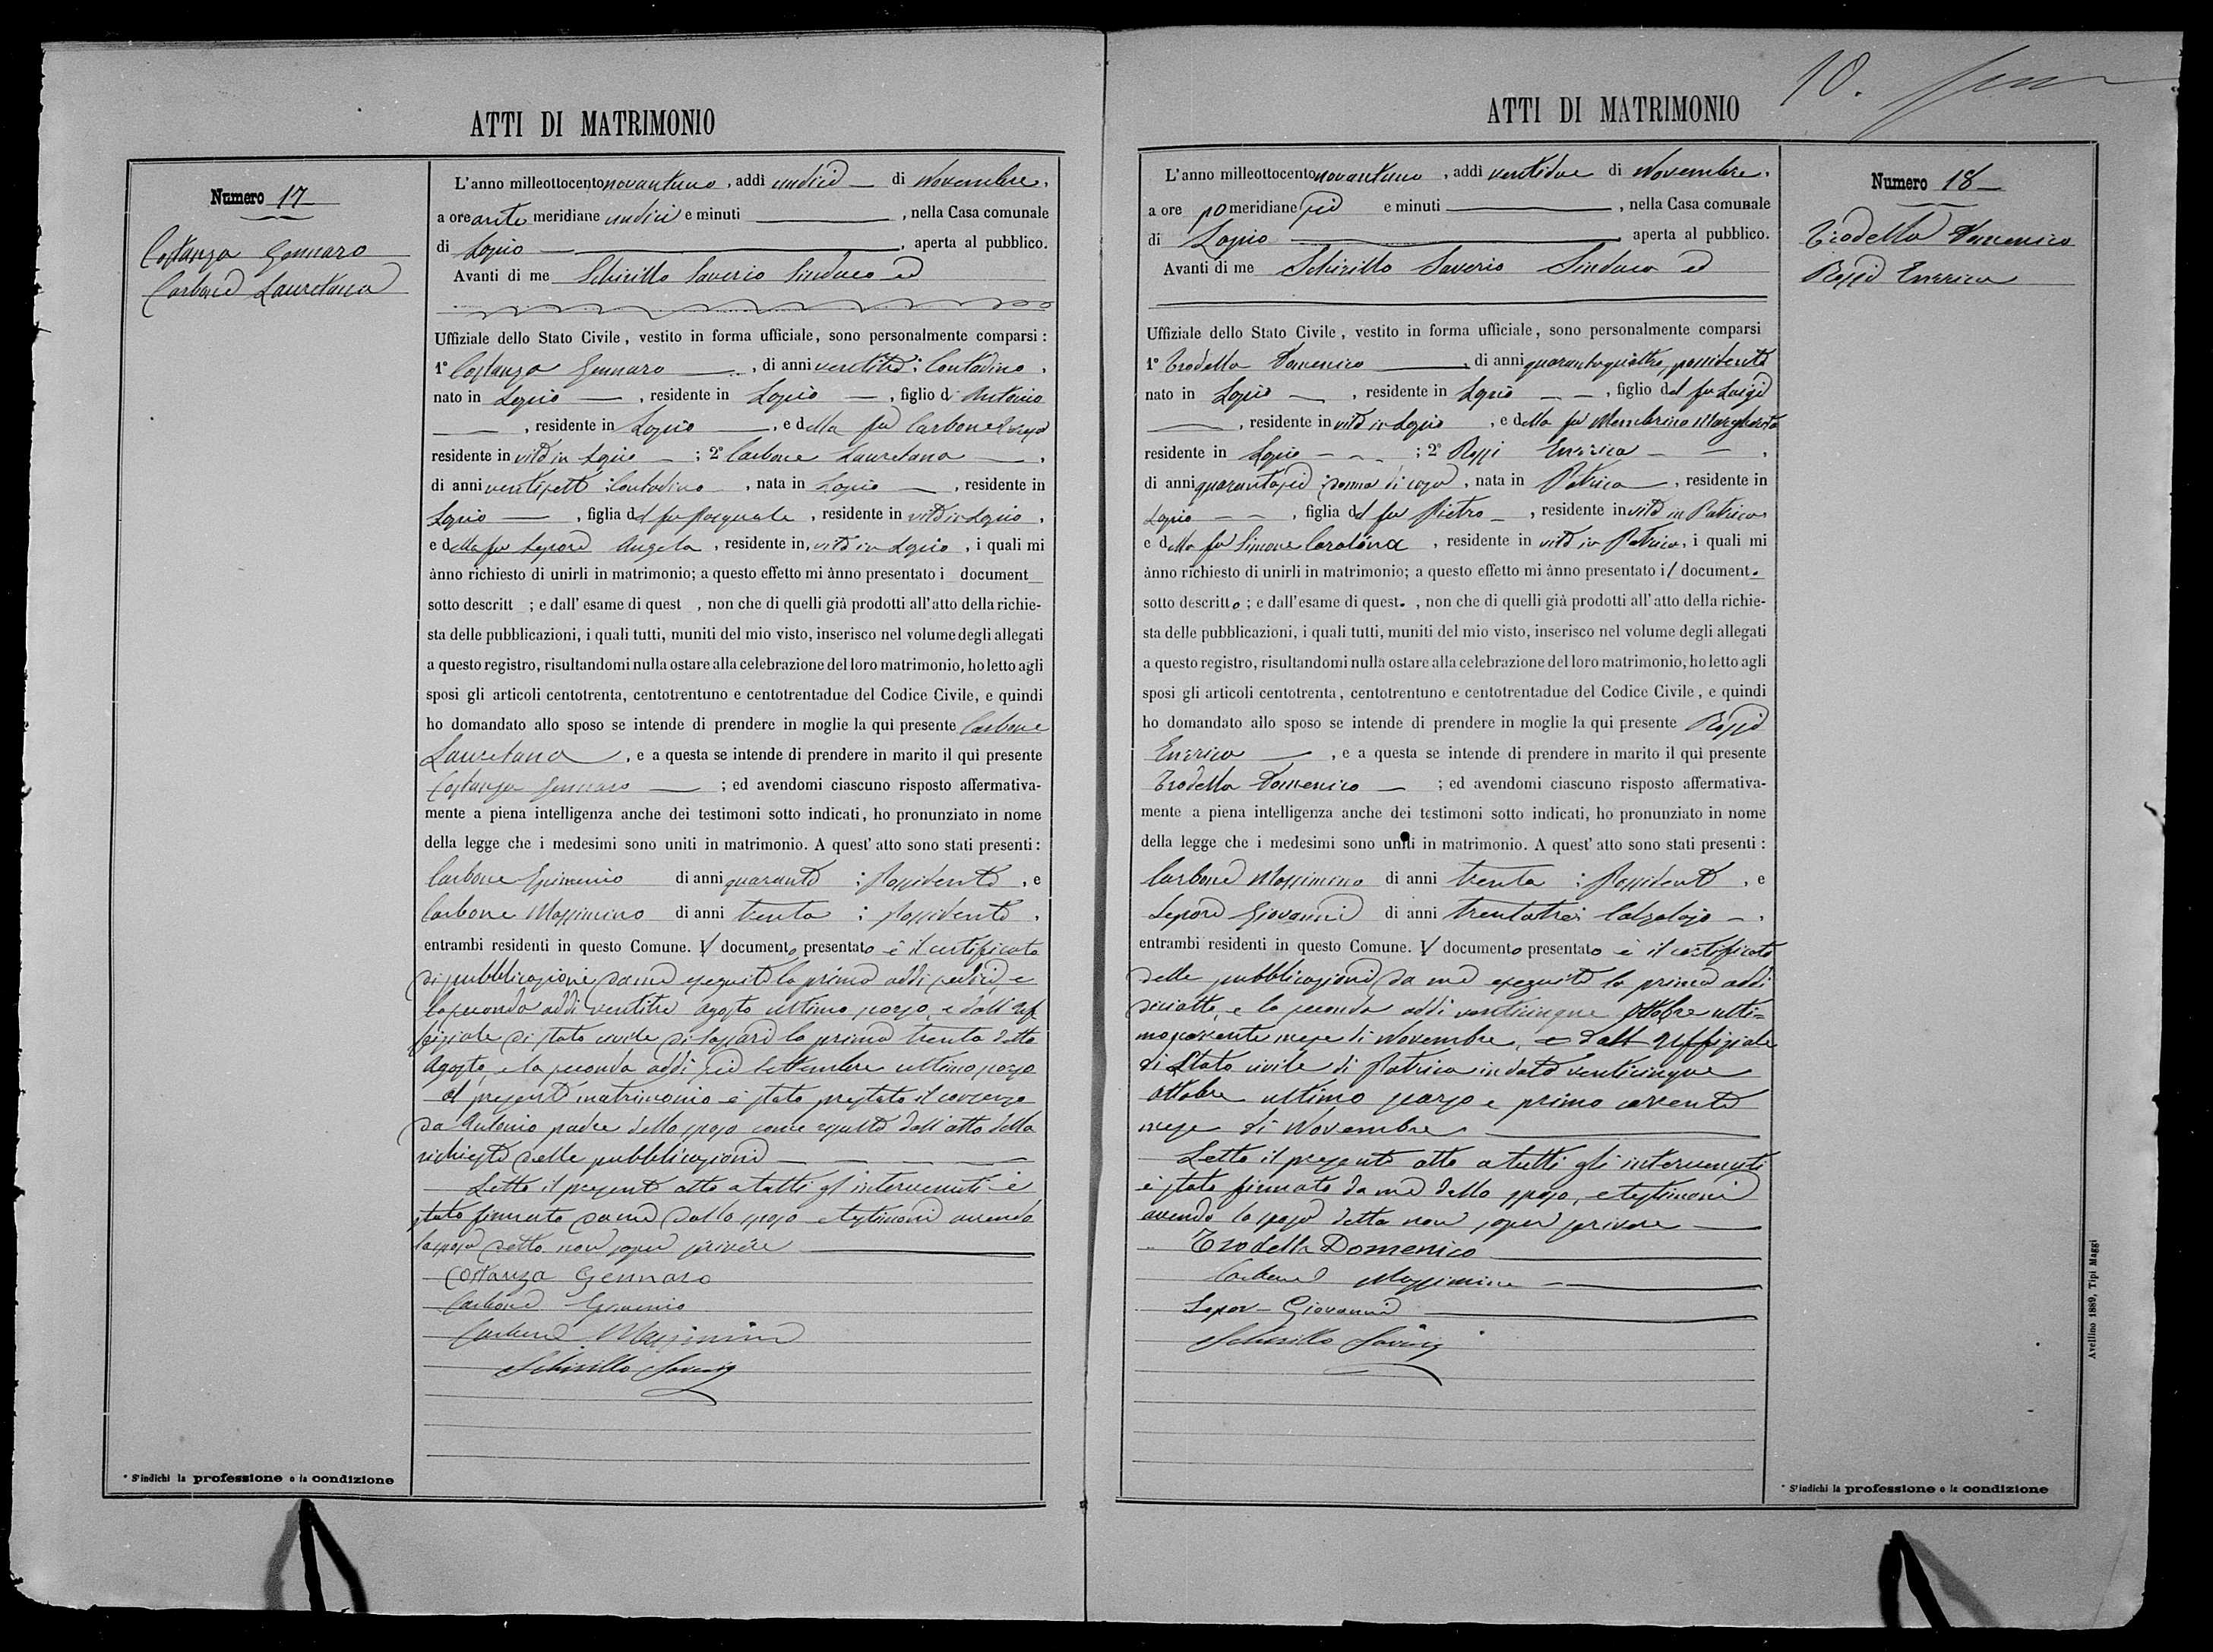 ATTI DI MATRIMONIO
Numero 17
Costanza Gennaro
Carbone Lauretana
L'anno milleottocento novantuno, addì undici di Novembre,
a ore ante meridiane undici e minuti, nella Casa comunale
di Lapio, aperta al pubblico.
Avanti di me Schirillo Saverio Sindaco ed
Uffiziale dello Stato Civile, vestito in forma ufficiale, sono personalmente comparsi:
1° Costanza Gennaro, di anni; Contadino,
nato in Lapio, residente in Lapio, figlio di Antonio
, residente in Lapio, e della fu Carbone
residente in vita in Lapio; 2° Carbone Lauretana,
di anni ventisette; Contadina, nata in Lapio, residente in
Lapio, figlia del fu Pasquale, residente in vita in Lapio,
e della fu Lepore Angela, residente in, vita in Lapio, i quali mi
ànno richiesto di unirli in matrimonio; a questo effetto mi ànno presentato i document
sotto descritt ; e dall' esame di quest , non che di quelli già prodotti all' atto della richie-
sta delle pubblicazioni, i quali tutti, muniti del mio visto, inserisco nel volume degli allegati
a questo registro, risultandomi nulla ostare alla celebrazione del loro matrimonio, ho letto agli
sposi gli articoli centotrenta, centotrentuno e centotrentadue del Codice Civile, e quindi
ho domandato allo sposo se intende di prendere in moglie la qui presente Carbone
Lauretana, e a questa se intende di prendere in marito il qui presente
Costanza Gennaro; ed avendomi ciascuno risposto affermativa-
mente a piena intelligenza anche dei testimoni sotto indicati, ho pronunziato in nome
della legge che i medesimi sono uniti in matrimonio. A quest' atto sono stati presenti:
Carbone di anni quaranta; Possidente, e
Carbone Massimino di anni trenta; Possidente,
entrambi residenti in questo Comune. Il documento presentato è il certificato
di pubblicazione da me eseguite la prima addì sedici, e
la seconda addì ventitre agosto ultimo scorso, e dall' Uf
fiziale di stato civile di la prima trenta detto
Agosto, e la seconda addì sei Settembre ultimo scorso
al presente matrimonio è stato prestato il consenso
da Antonio padre dello sposo come risulta dall' atto della
richiesta delle pubblicazioni
Letto il presente atto a tutti gl' intervenuti è
stato firmato da me dallo sposo e testimoni avendo
la sposa detto non saper scrivere
Costanza Gennaro
Carbone
Carbone Massimino
Schirillo Saverio
* S'indichi la professione o la condizione
10.
ATTI DI MATRIMONIO
Numero 18
Trodella Domenico
Rossi Enrica
L'anno milleottocento novantuno, addì ventidue di Novembre,
a ore pomeridiane sei e minuti, nella Casa comunale
di Lapio, aperta al pubblico.
Avanti di me Schirillo Saverio Sindaco ed
Uffiziale dello Stato Civile, vestito in forma ufficiale, sono personalmente comparsi
1° Trodella Domenico, di anni quarantaquattro, possidente
nato in Lapio, residente in Lapio, figlio del fu Luigi
, residente in vita in Lapio, e della fu Membrino Margherita
residente in Lapio; 2° Rossi Enrica,
di anni quarantasei; donna di casa, nata in Patrica, residente in
Lapio, figlia del fu Pietro, residente in vita in Patrica
e della fu Simone Carolina, residente in vita in Patrica, i quali mi
ànno richiesto di unirli in matrimonio; a questo effetto mi ànno presentato il document.
sotto descritto; e dall' esame di quest. , non che di quelli già prodotti all' atto della richie-
sta delle pubblicazioni, i quali tutti, muniti del mio visto, inserisco nel volume degli allegati
a questo registro, risultandomi nulla ostare alla celebrazione del loro matrimonio, ho letto agli
sposi gli articoli centotrenta, centotrentuno e centotrentadue del Codice Civile, e quindi
ho domandato allo sposo se intende di prendere in moglie la qui presente Rossi
Enrica, e a questa se intende di prendere in marito il qui presente
Trodella Domenico; ed avendomi ciascuno risposto affermativa-
mente a piena intelligenza anche dei testimoni sotto indicati, ho pronunziato in nome
della legge che i medesimi sono uniti in matrimonio. A quest' atto sono stati presenti:
Carbone Massimino di anni trenta; Possidente, e
Lepore Giovanni di anni trentatrei Calzolajo,
entrambi residenti in questo Comune. Il documento presentato è il certificato
delle pubblicazioni da me eseguite la prima addì
diciotto, e la seconda addì venticinque ottobre ulti=
mo corrente mese di Novembre, e dall' Uffiziale
di Stato civile di Patrica in data venticinque
ottobre ultimo scorso e primo corrente
mese di Novembre
Letto il presente atto a tutti gli intervenuti
è stato firmato da me dallo sposo, e testimoni
avendo la sposa detto non saper scrivere
Trodella Domenico
Carbone Massimino
Lepor Giovanni
Schirillo Saverio
* S'indichi la professione o la condizione
Avellino 1889, Tipi Maggi